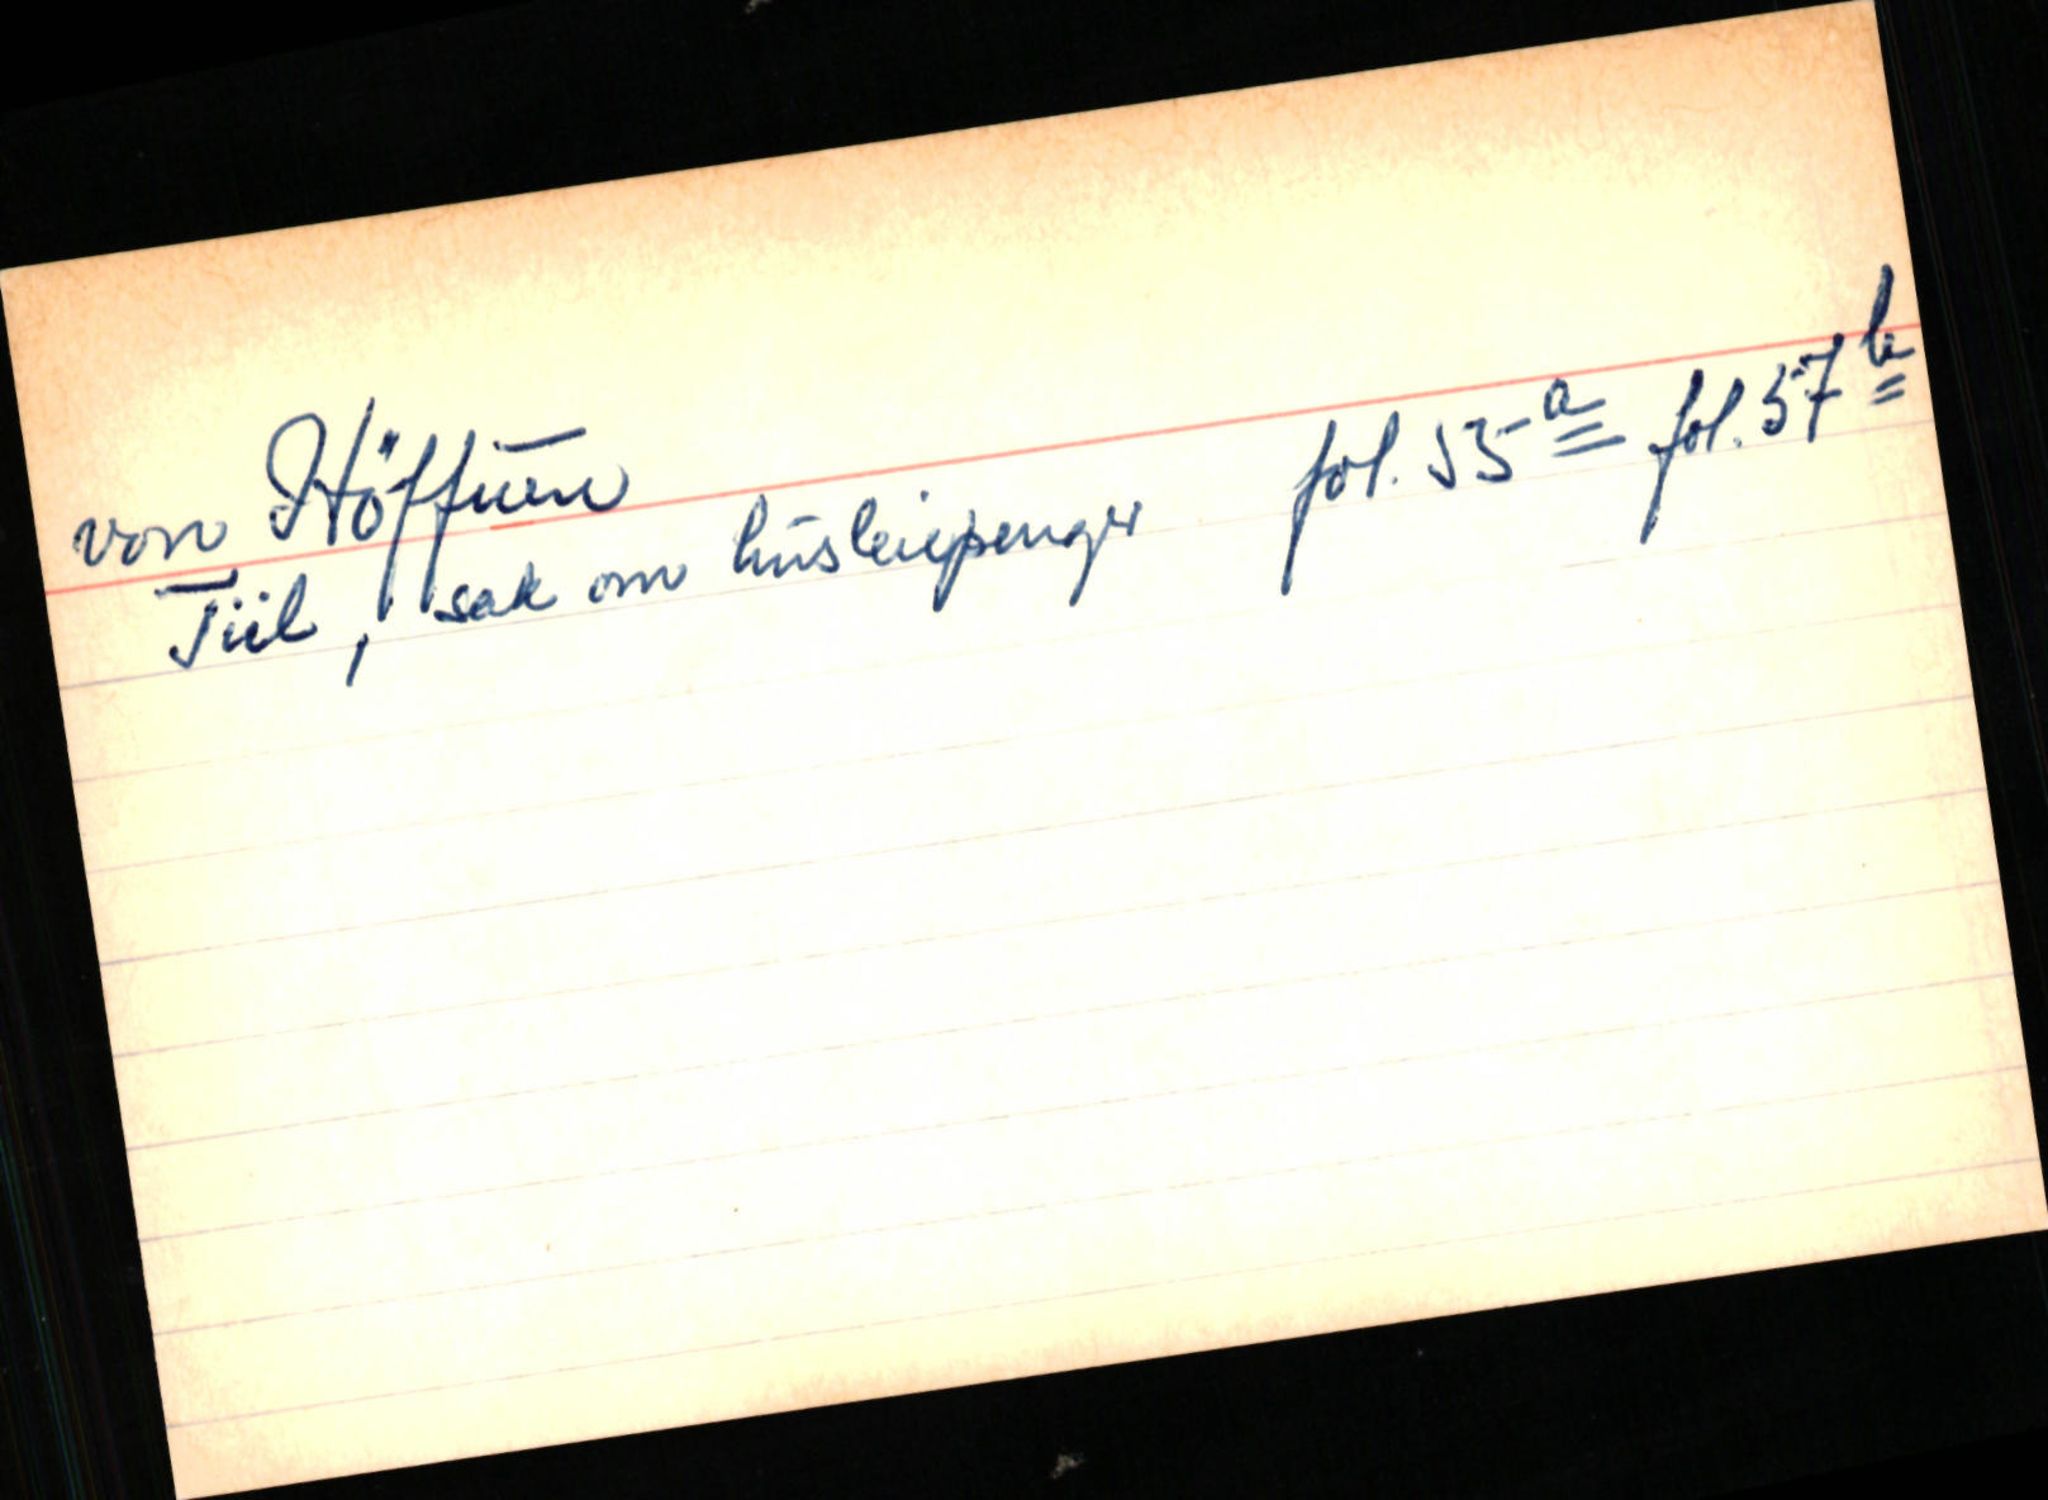 von Höffnen
Tiil, sak om husleiepenger fol. 55a fol. 57b